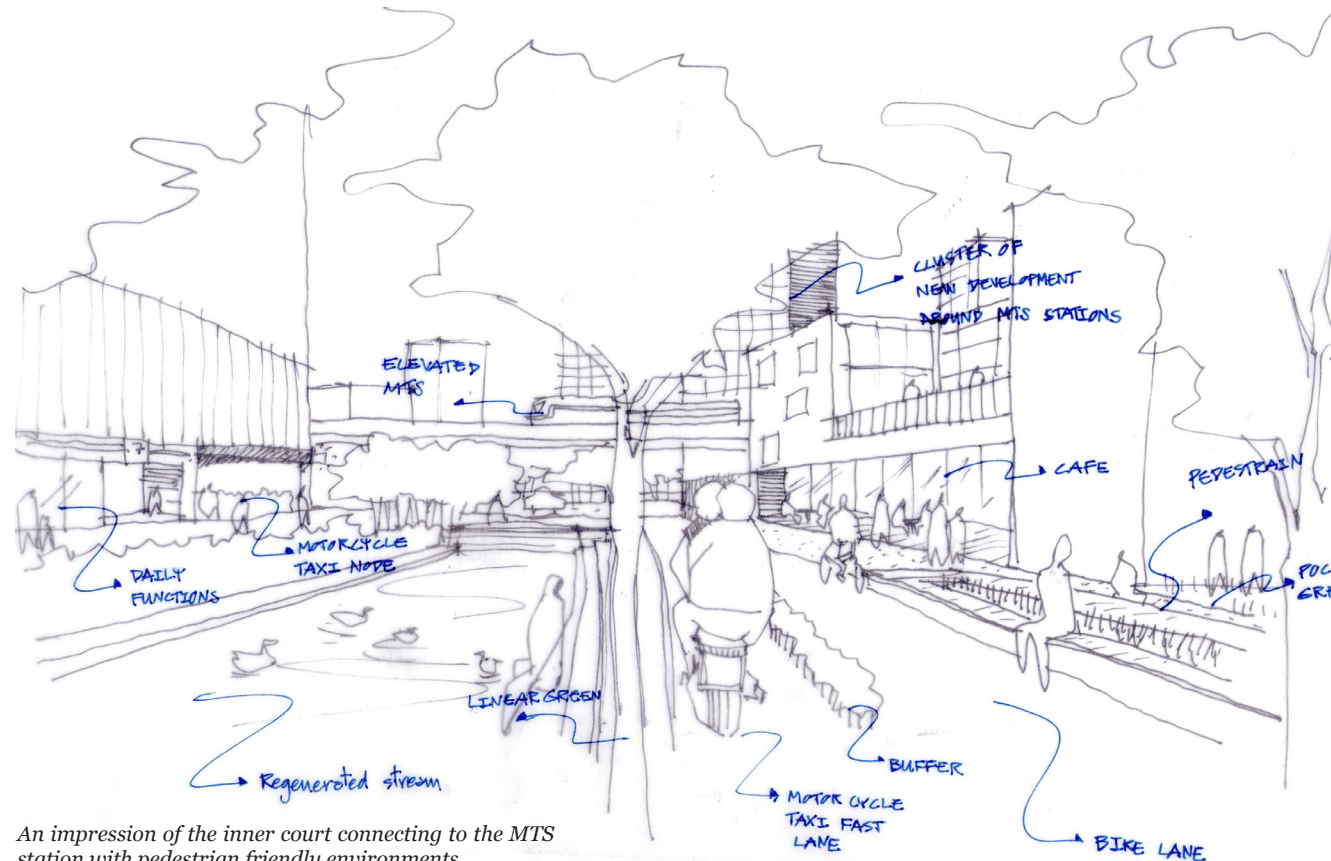 CLUSTER OF
NEW DEVELOPMENT
AROUND MTS STATIONS
ELEVATED
MTS
CAFE
PEDESTRAIN
MOTORCYCLE
TAXI NODE
DAILY
FUNCTIONS
POC
GRE
LINEAR GREEN
Regenerated stream
BUFFER
MOTOR CYCLE
TAXI FAST
LANE
BIKE LANE
An impression of the inner court connecting to the MTS
station with pedestrian friendly environments